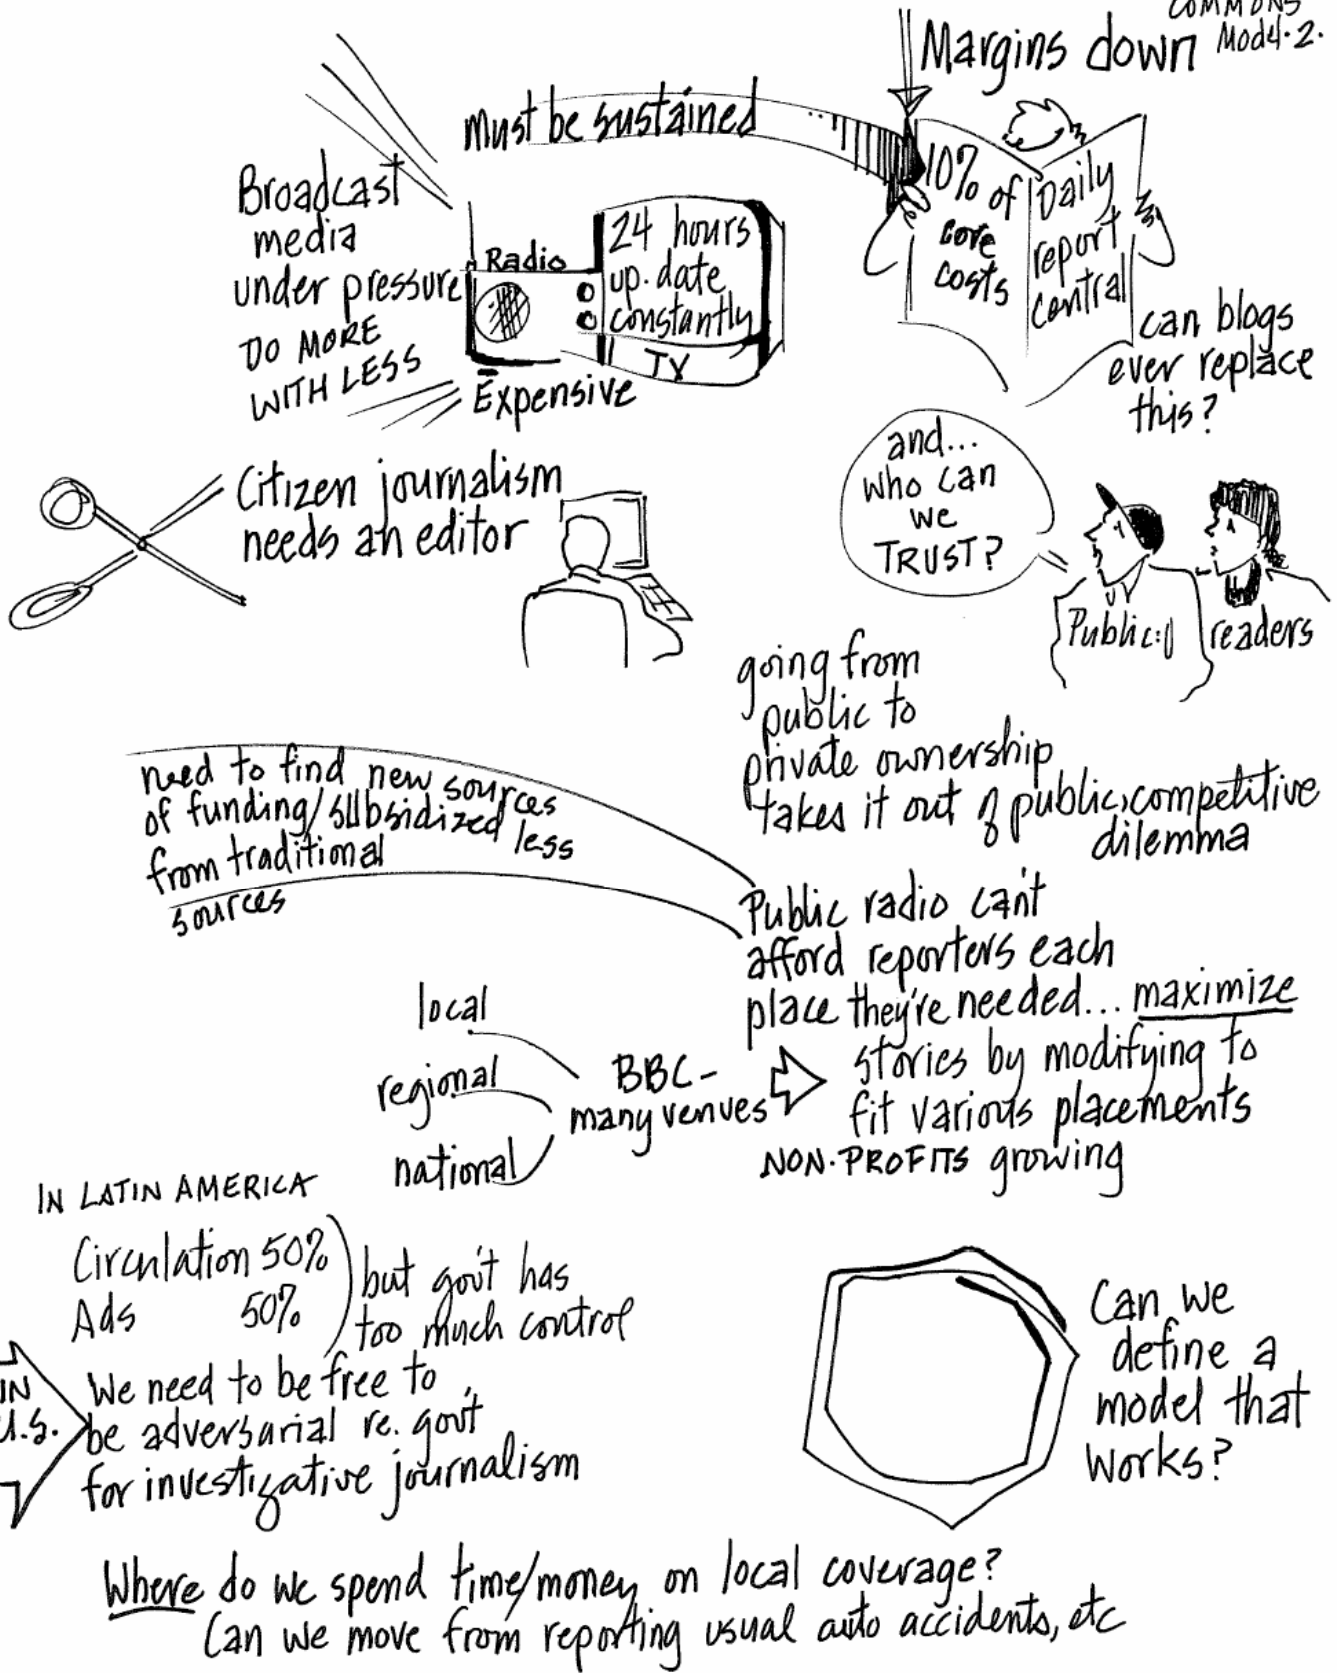 COMMONS
Mod4.2.
Margins down
must be sustained
10% of
core
costs
Daily
report
central
Broadcast
media
under pressure
DO MORE
WITH LESS
Radio
24 hours
up.date
constantly
TV
Expensive
can blogs
ever replace
this?
and...
who can
we
TRUST?
Public:()
readers
Citizen journalism
needs an editor
going from
public to
private ownership
takes it out of public, competitive
dilemma
need to find new sources
of funding/subsidized less
from traditional
sources
Public radio can't
afford reporters each
place they're needed... maximize
stories by modifying to
fit various placements
NON-PROFITS growing
local
regional
national
BBC-
many venues
IN LATIN AMERICA
Circulation 50%
Ads 50%
but gov't has
too much control
IN
U.S.
We need to be free to
be adversarial re. gov't
for investigative journalism
Can we
define a
model that
works?
Where do we spend time/money on local coverage?
Can we move from reporting usual auto accidents, etc